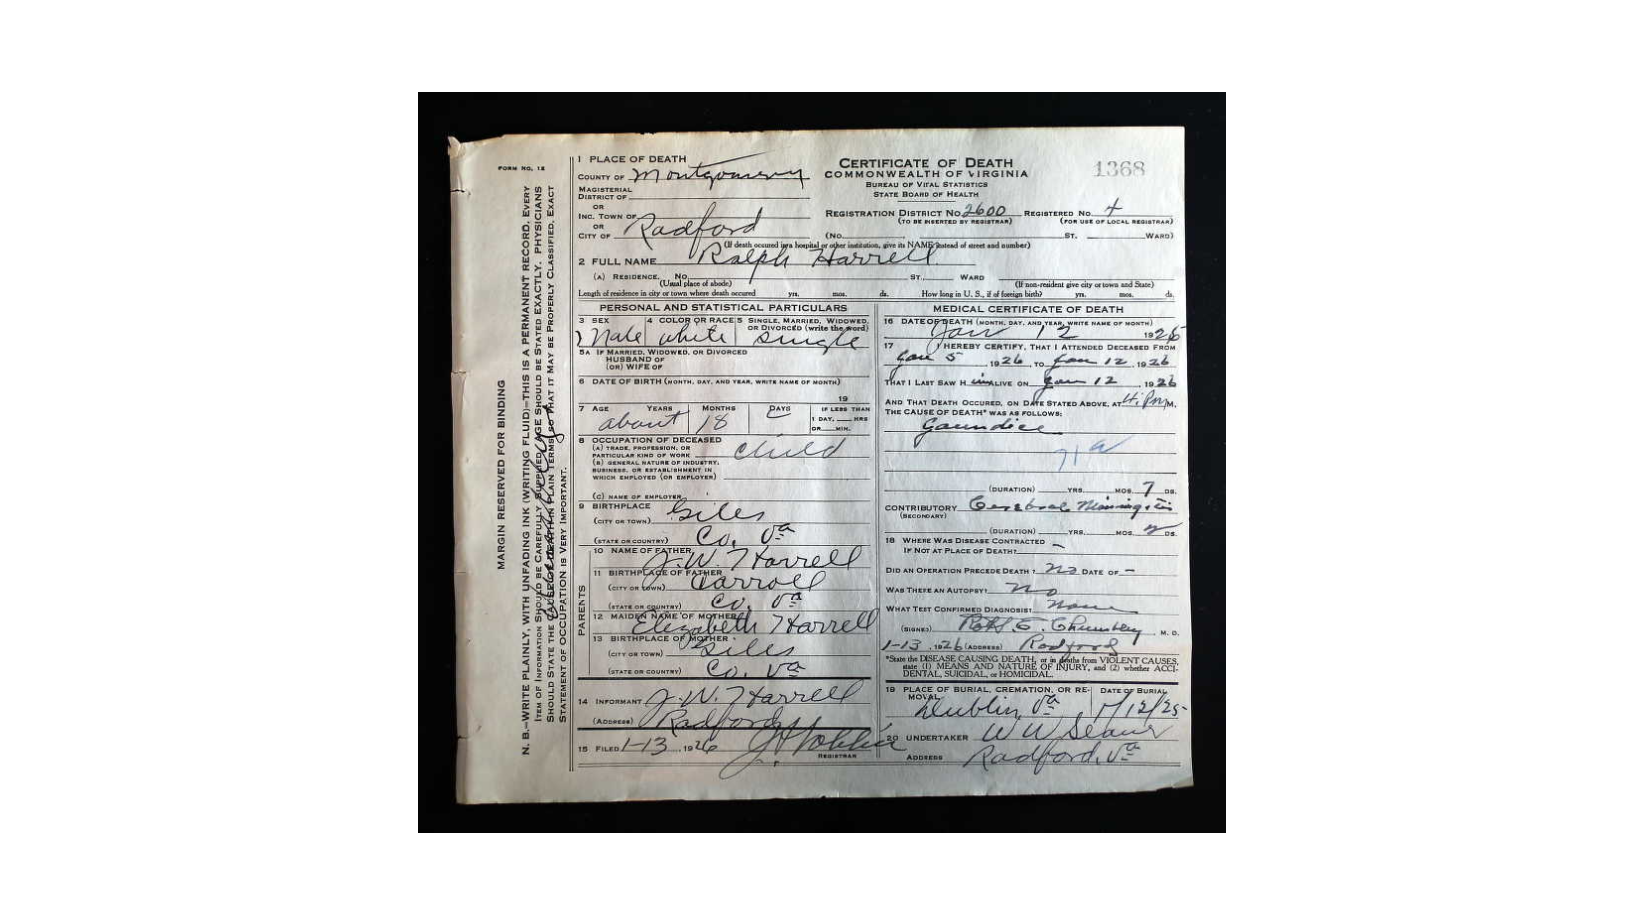 FORM NO. 12
MARGIN RESERVED FOR BINDING
N. B.—WRITE PLAINLY, WITH UNFADING INK (WRITING FLUID)—THIS IS A PERMANENT RECORD. EVERY
ITEM OF INFORMATION SHOULD BE CAREFULLY SUPPLIED. AGE SHOULD BE STATED EXACTLY. PHYSICIANS
SHOULD STATE THE CAUSE OF DEATH IN PLAIN TERMS, SO THAT IT MAY BE PROPERLY CLASSIFIED. EXACT
STATEMENT OF OCCUPATION IS VERY IMPORTANT.
CERTIFICATE OF DEATH
COMMONWEALTH OF VIRGINIA
BUREAU OF VITAL STATISTICS
STATE BOARD OF HEALTH
1368
1 PLACE OF DEATH
COUNTY OF Montgomery
MAGISTERIAL
DISTRICT OF
OR
INC. TOWN OF
OR
CITY OF Radford
REGISTRATION DISTRICT NO. 2600 REGISTERED NO. 4
(TO BE INSERTED BY REGISTRAR) (FOR USE OF LOCAL REGISTRAR)
(NO. ST. WARD)
(If death occured in a hospital or other institution, give its NAME instead of street and number)
2 FULL NAME Ralph Harrell
(A) RESIDENCE. NO. ST. WARD
(Usual place of abode) (If non-resident give city or town and State)
Length of residence in city or town where death occured yrs. mos. ds. How long in U. S., if of foreign birth? yrs. mos. ds.
PERSONAL AND STATISTICAL PARTICULARS
3 SEX 4 COLOR OR RACE 5 SINGLE, MARRIED, WIDOWED,
OR DIVORCED (write the word)
Male white single
5A IF MARRIED, WIDOWED, OR DIVORCED
HUSBAND OF
(OR) WIFE OF
6 DATE OF BIRTH (MONTH, DAY, AND YEAR, WRITE NAME OF MONTH)
19
7 AGE YEARS MONTHS DAYS IF LESS THAN
1 DAY, HRS
OR MIN.
about 18
8 OCCUPATION OF DECEASED
(A) TRADE, PROFESSION, OR
PARTICULAR KIND OF WORK child
(B) GENERAL NATURE OF INDUSTRY,
BUSINESS, OR ESTABLISHMENT IN
WHICH EMPLOYED (OR EMPLOYER)
(C) NAME OF EMPLOYER
9 BIRTHPLACE Giles
(CITY OR TOWN)
(STATE OR COUNTRY) Co. Va
PARENTS
10 NAME OF FATHER J. W. Harrell
11 BIRTHPLACE OF FATHER
(CITY OR TOWN) Carroll
(STATE OR COUNTRY) Co. Va
12 MAIDEN NAME OF MOTHER Elizabeth Harrell
13 BIRTHPLACE OF MOTHER
(CITY OR TOWN) Giles
(STATE OR COUNTRY) Co. Va
14 INFORMANT J. W. Harrell
(ADDRESS) Radford
15 FILED 1-13, 1926
REGISTRAR
MEDICAL CERTIFICATE OF DEATH
16 DATE OF DEATH (MONTH, DAY, AND YEAR, WRITE NAME OF MONTH)
Jan 12 1926
17 I HEREBY CERTIFY, THAT I ATTENDED DECEASED FROM
Jan 5, 1926, TO Jan 12, 1926
THAT I LAST SAW H im ALIVE ON Jan 12, 1926
AND THAT DEATH OCCURED, ON DATE STATED ABOVE, AT M.
THE CAUSE OF DEATH* WAS AS FOLLOWS:
Jaundice
71a
(DURATION) YRS. MOS. 7 DS.
CONTRIBUTORY Cerebral
(SECONDARY)
(DURATION) YRS. MOS. DS.
18 WHERE WAS DISEASE CONTRACTED
IF NOT AT PLACE OF DEATH? —
DID AN OPERATION PRECEDE DEATH? No DATE OF —
WAS THERE AN AUTOPSY? No
WHAT TEST CONFIRMED DIAGNOSIS? None
(SIGNED) M. D.
1-13, 1926 (ADDRESS) Radford
*State the DISEASE CAUSING DEATH, or in deaths from VIOLENT CAUSES,
state (1) MEANS AND NATURE OF INJURY, and (2) whether ACCI-
DENTAL, SUICIDAL, or HOMICIDAL.
19 PLACE OF BURIAL, CREMATION, OR RE- DATE OF BURIAL
MOVAL
Dublin, Va 1/12/25
20 UNDERTAKER W W
ADDRESS Radford, Va